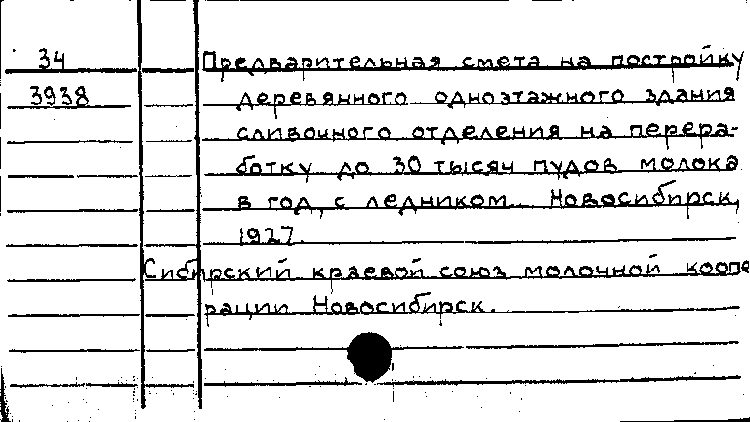 34 Предварительная смета на постройку
3938 деревянного одноэтажного здания
сливочного отделения на перера-
ботку до 30 тысяч пудов молока
в год, с ледником. Новосибирск,
1927.
Сибирский краевой союз молочной коопе
рации Новосибирск.